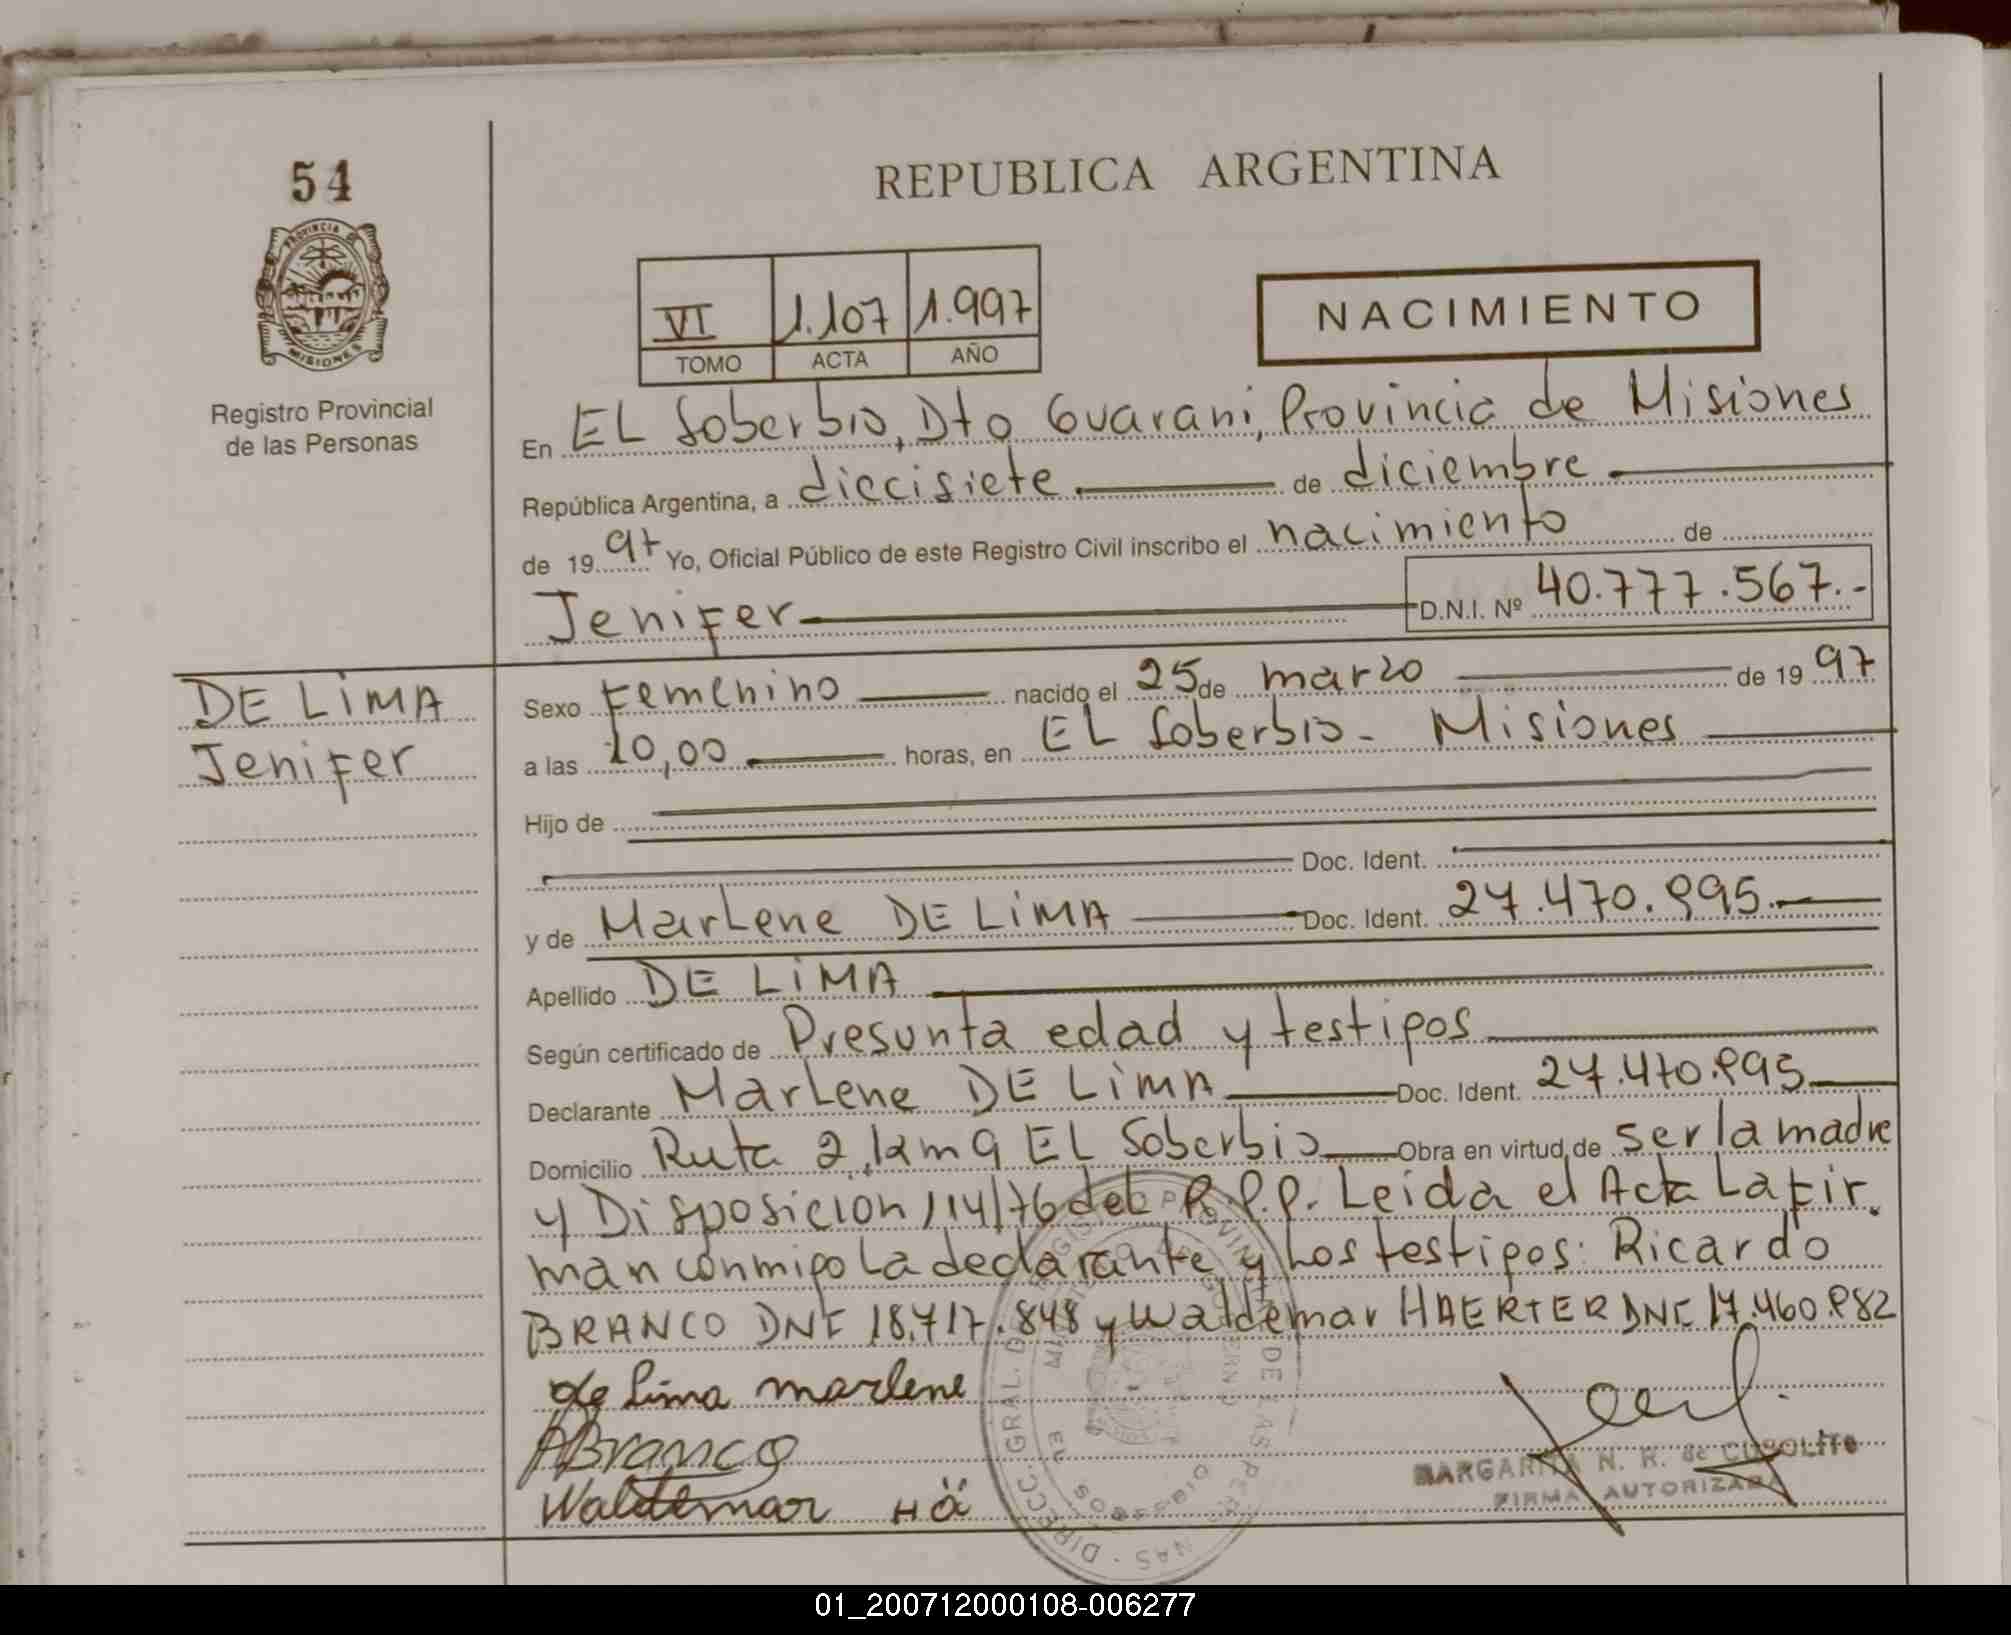 54
REPUBLICA ARGENTINA
PROVINCIA DE
MISIONES
Registro Provincial
de las Personas
VI 1.107 1.997
TOMO ACTA AÑO
NACIMIENTO
En EL Soberbio, Dto Guarani, Provincia de Misiones
República Argentina, a diecisiete de diciembre
de 19 97 Yo, Oficial Público de este Registro Civil inscribo el nacimiento de
Jenifer D.N.I. Nº 40.777.567.-
DE LiMA
Jenifer
Sexo Femenino nacido el 25 de marzo de 19 97
a las 10,00 horas, en EL Soberbio - Misiones
Hijo de
Doc. Ident.
y de MarLene DE LiMA Doc. Ident. 27.470.895.
Apellido DE LiMA
Según certificado de Presunta edad y testigos
Declarante MarLene DE LiMA Doc. Ident. 27.470.895
Domicilio Ruta 2, km 9 EL Soberbio Obra en virtud de ser la madre
y Disposicion 114/76 del R.P.P. Leida el Acta La fir.
man conmigo La declarante y Los testigos: Ricardo
BRANCO DNI 18.717.848 y Waldemar HAERTER DNI 17.460.882
de lima marlene
ABranco
Waldemar Hä
MARGARITA N. R. de
FIRMA AUTORIZADA
01_200712000108-006277